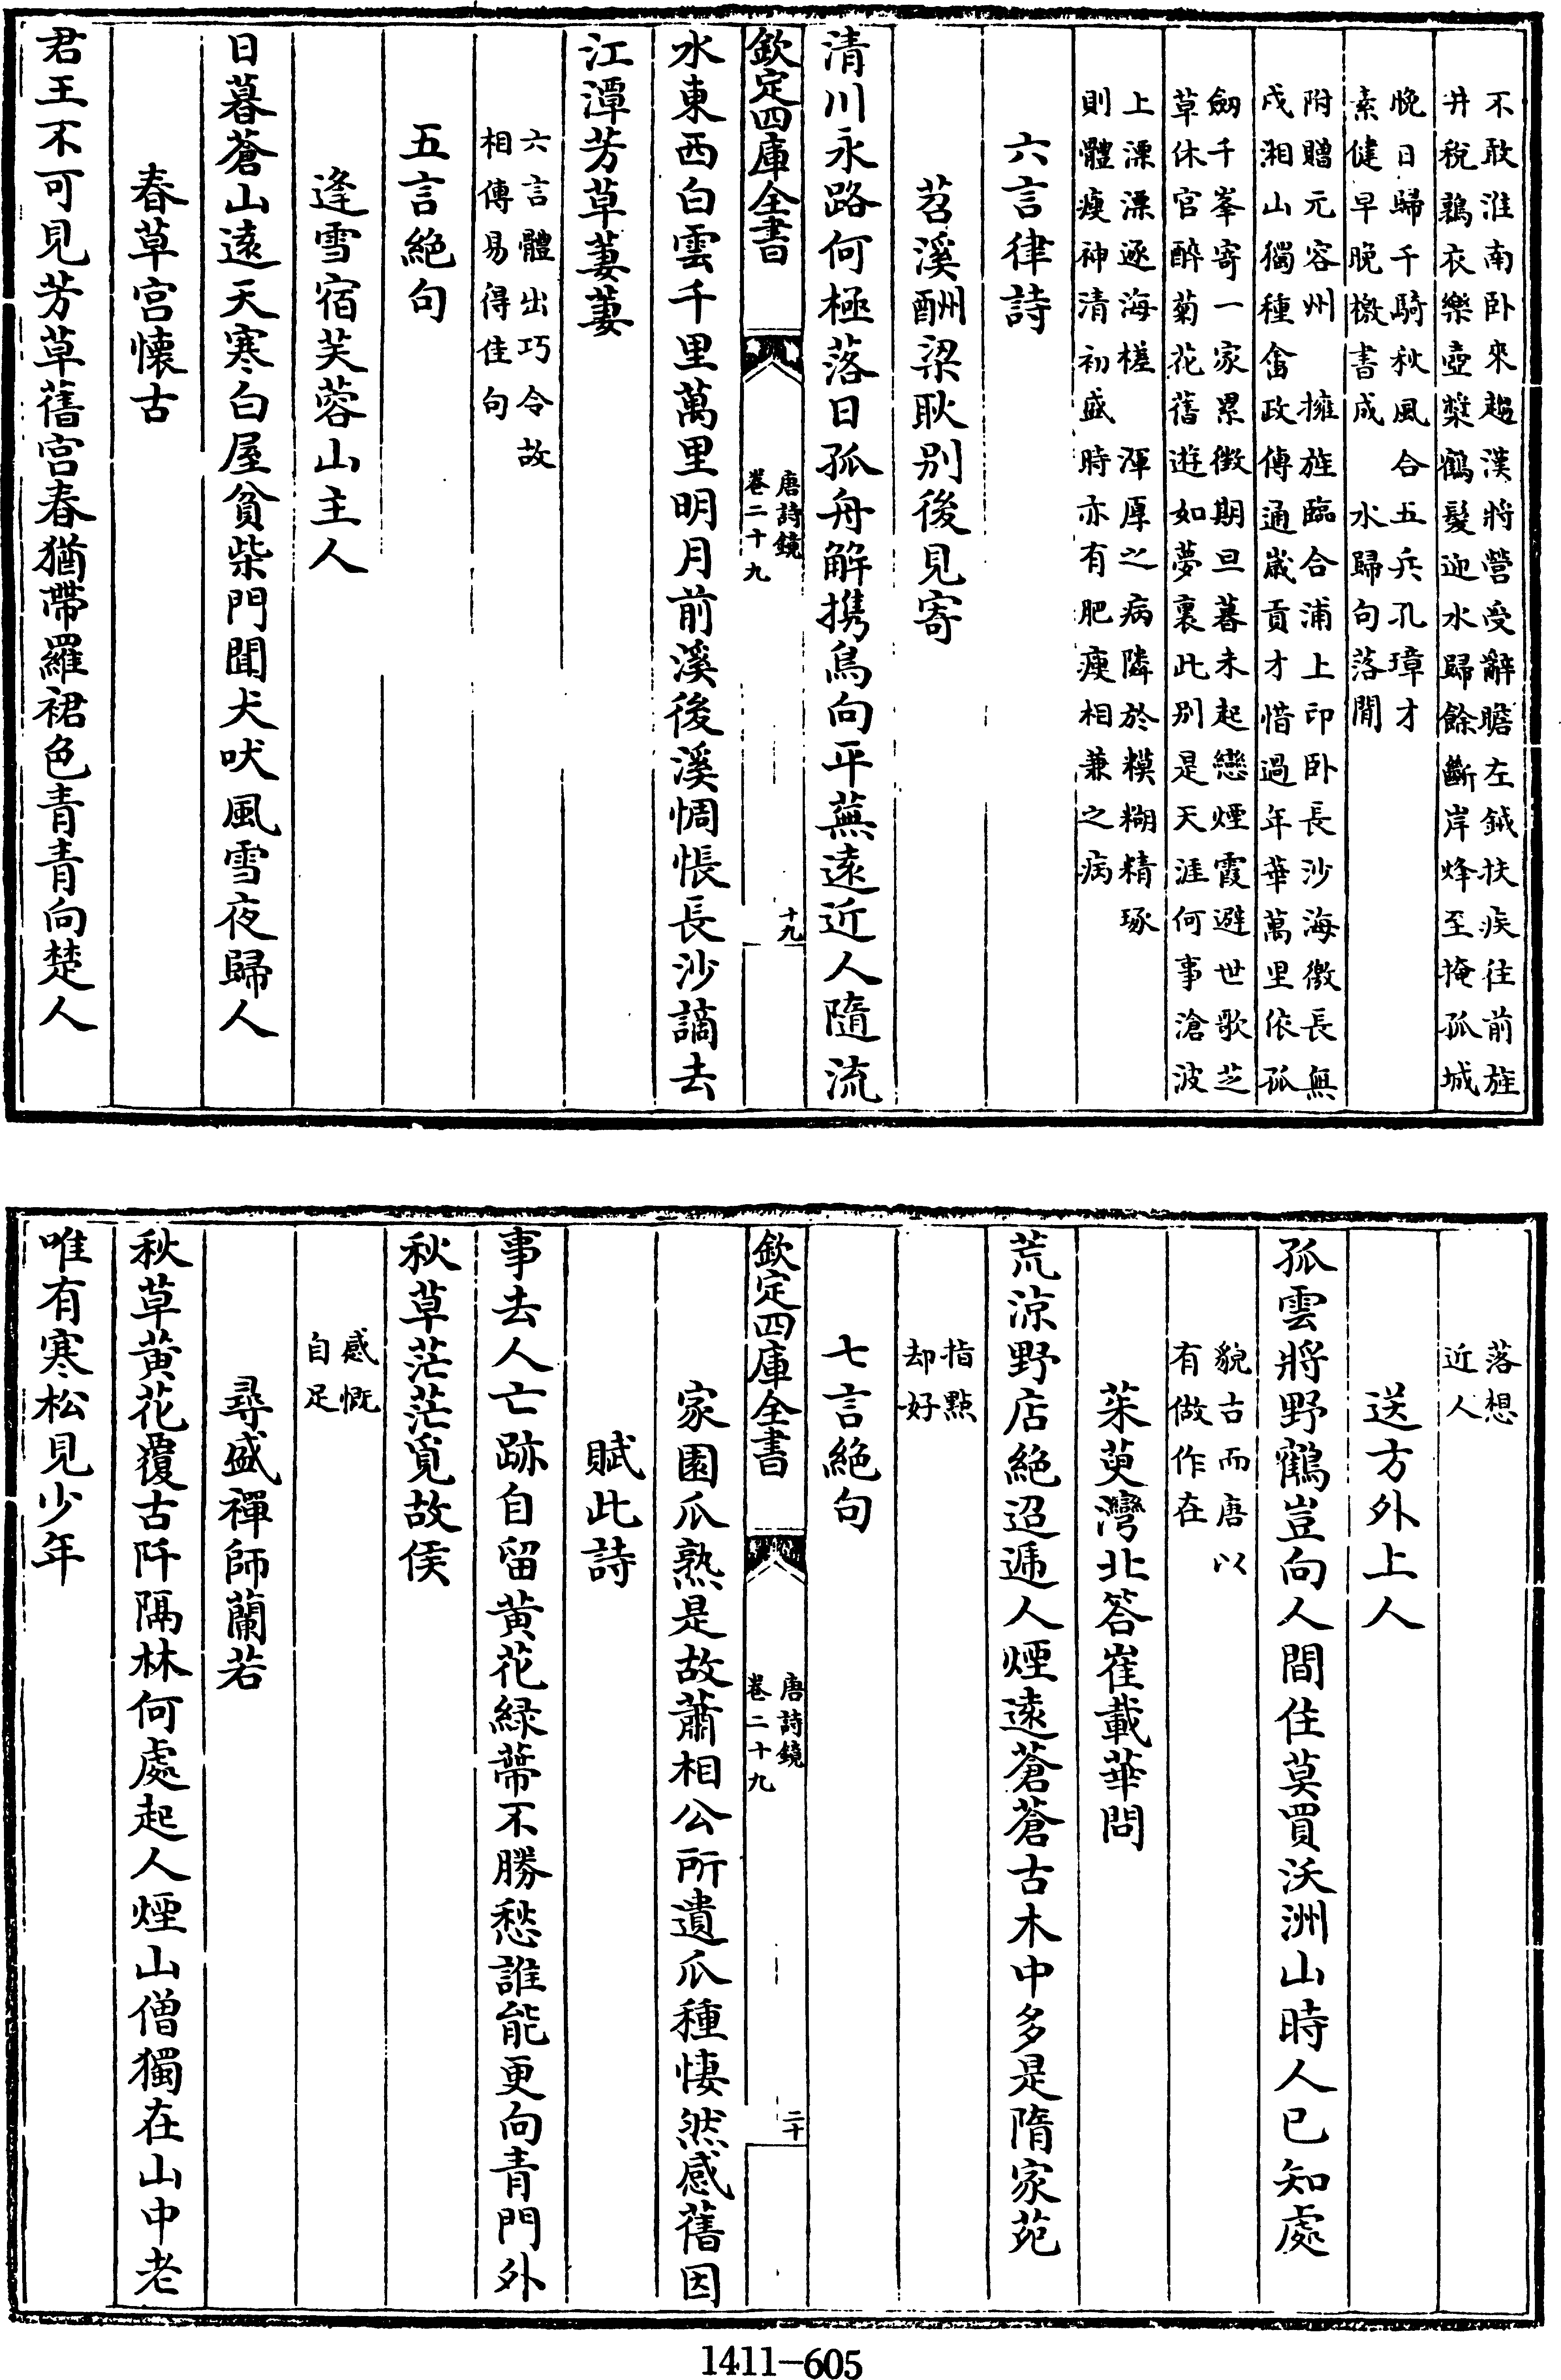 不敢淮南卧來趨漢將營受辭瞻左鉞扶疾往前旌
井稅鶉衣樂壺漿鶴髮迎水歸餘斷岸烽至掩孤城
晚日歸千騎秋風合五兵孔璋才
素健早晚檄書成　水歸句落閒
附贈元容州　擁旌臨合浦上印卧長沙海徼長無
戍湘山獨種畬政傳通歲貢才惜過年華萬里依孤
劒千峯寄一家累徵期旦暮未起戀煙霞避世歌芝
草休官醉菊花舊遊如夢裏此别是天涯何事滄波
上漂漂逐海槎　渾厚之病隣於糢糊精琢
則體瘦神清初盛時亦有肥瘦相兼之病
六言律詩
苕溪酬梁耿别後見寄
清川永路何極落日孤舟解携鳥向平蕪遠近人隨流
欽定四庫全書
唐詩鏡
卷二十九
十九
水東西白雲千里萬里明月前溪後溪惆悵長沙謫去
江潭芳草萋萋
六言體出巧令故
相傳易得佳句
五言絶句
逢雪宿芙蓉山主人
日暮蒼山遠天寒白屋貧柴門聞犬吠風雪夜歸人
春草宫懷古
君王不可見芳草舊宫春猶帶羅裙色青青向楚人
落想
近人
送方外上人
孤雲將野鶴豈向人間住莫買沃洲山時人已知處
貌古而唐以
有做作在
茱萸灣北答崔載華問
荒涼野店絶迢遞人煙遠蒼蒼古木中多是隋家苑
指點
却好
七言絶句
欽定四庫全書
唐詩鏡
卷二十九
二十
家園瓜熟是故蕭相公所遺瓜種悽然感舊因
賦此詩
事去人亡跡自留黄花緑蔕不勝愁誰能更向青門外
秋草茫茫覓故侯
感慨
自足
尋盛禪師蘭若
秋草黄花覆古阡隔林何處起人煙山僧獨在山中老
唯有寒松見少年
1411-605